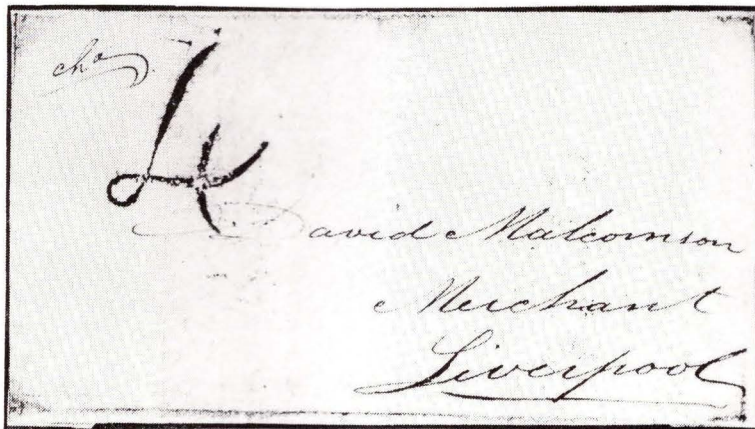 cho
4
David Malcomson
Merchant
Liverpool